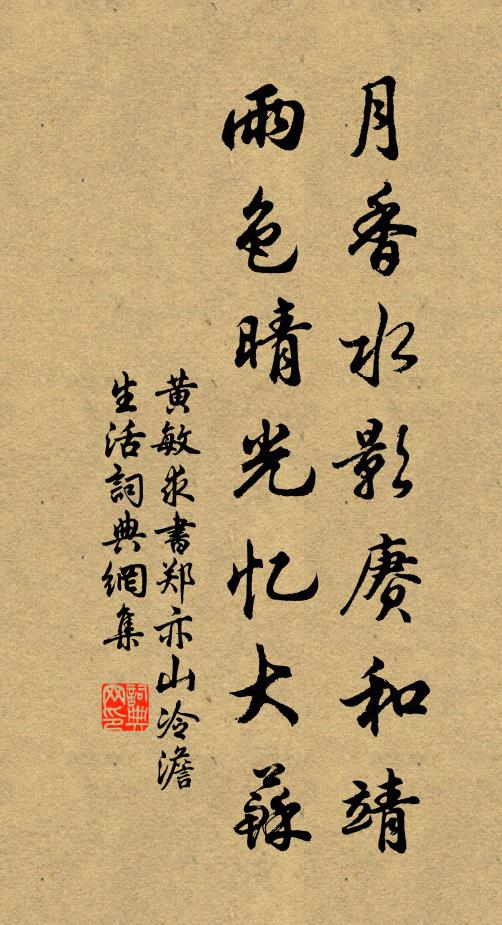 月香水影赓和靖
雨色晴光忆大蘇
黄敏求書郑亦山冷澹
生活詞典網集
詞典
网印